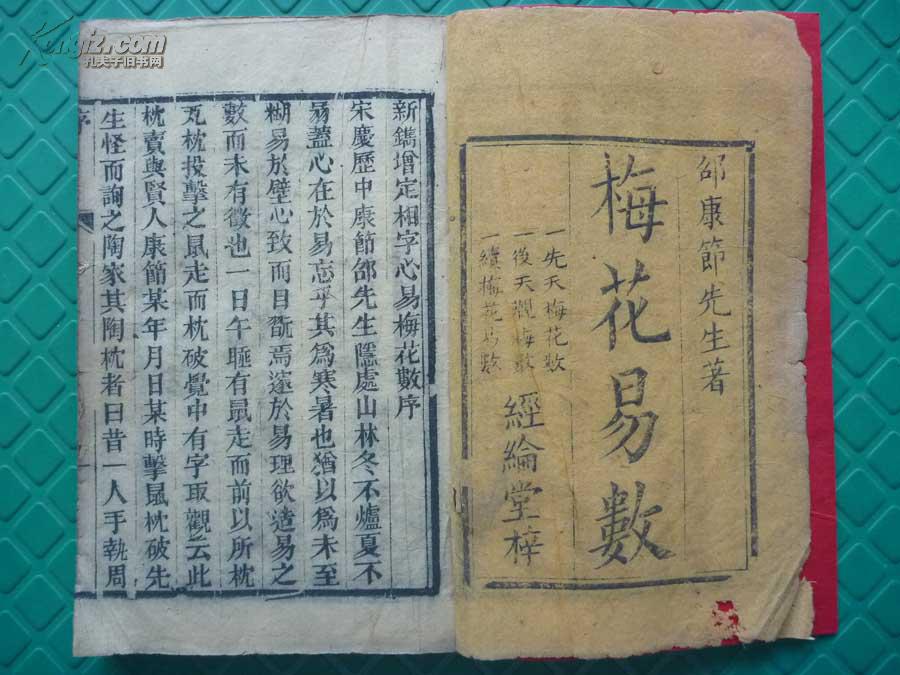 邵康節先生著
梅花易數
一先天梅花數
一後天觀梅數
一續梅花易數
經綸堂梓
新鐫增定相字心易梅花數序
宋慶歷中康節邵先生隱處山林冬不爐夏不
扇蓋心在於易忘乎其為寒暑也猶以為未至
糊易於壁心致而目翫焉邃於易理欲造易之
數而未有徵也一日午睡有鼠走而前以所枕
瓦枕投擊之鼠走而枕破覺中有字取觀云此
枕賣與賢人康節某年月日某時擊鼠枕破先
生怪而詢之陶家其陶枕者曰昔一人手執周
序
Kongfz.com
孔夫子旧书网